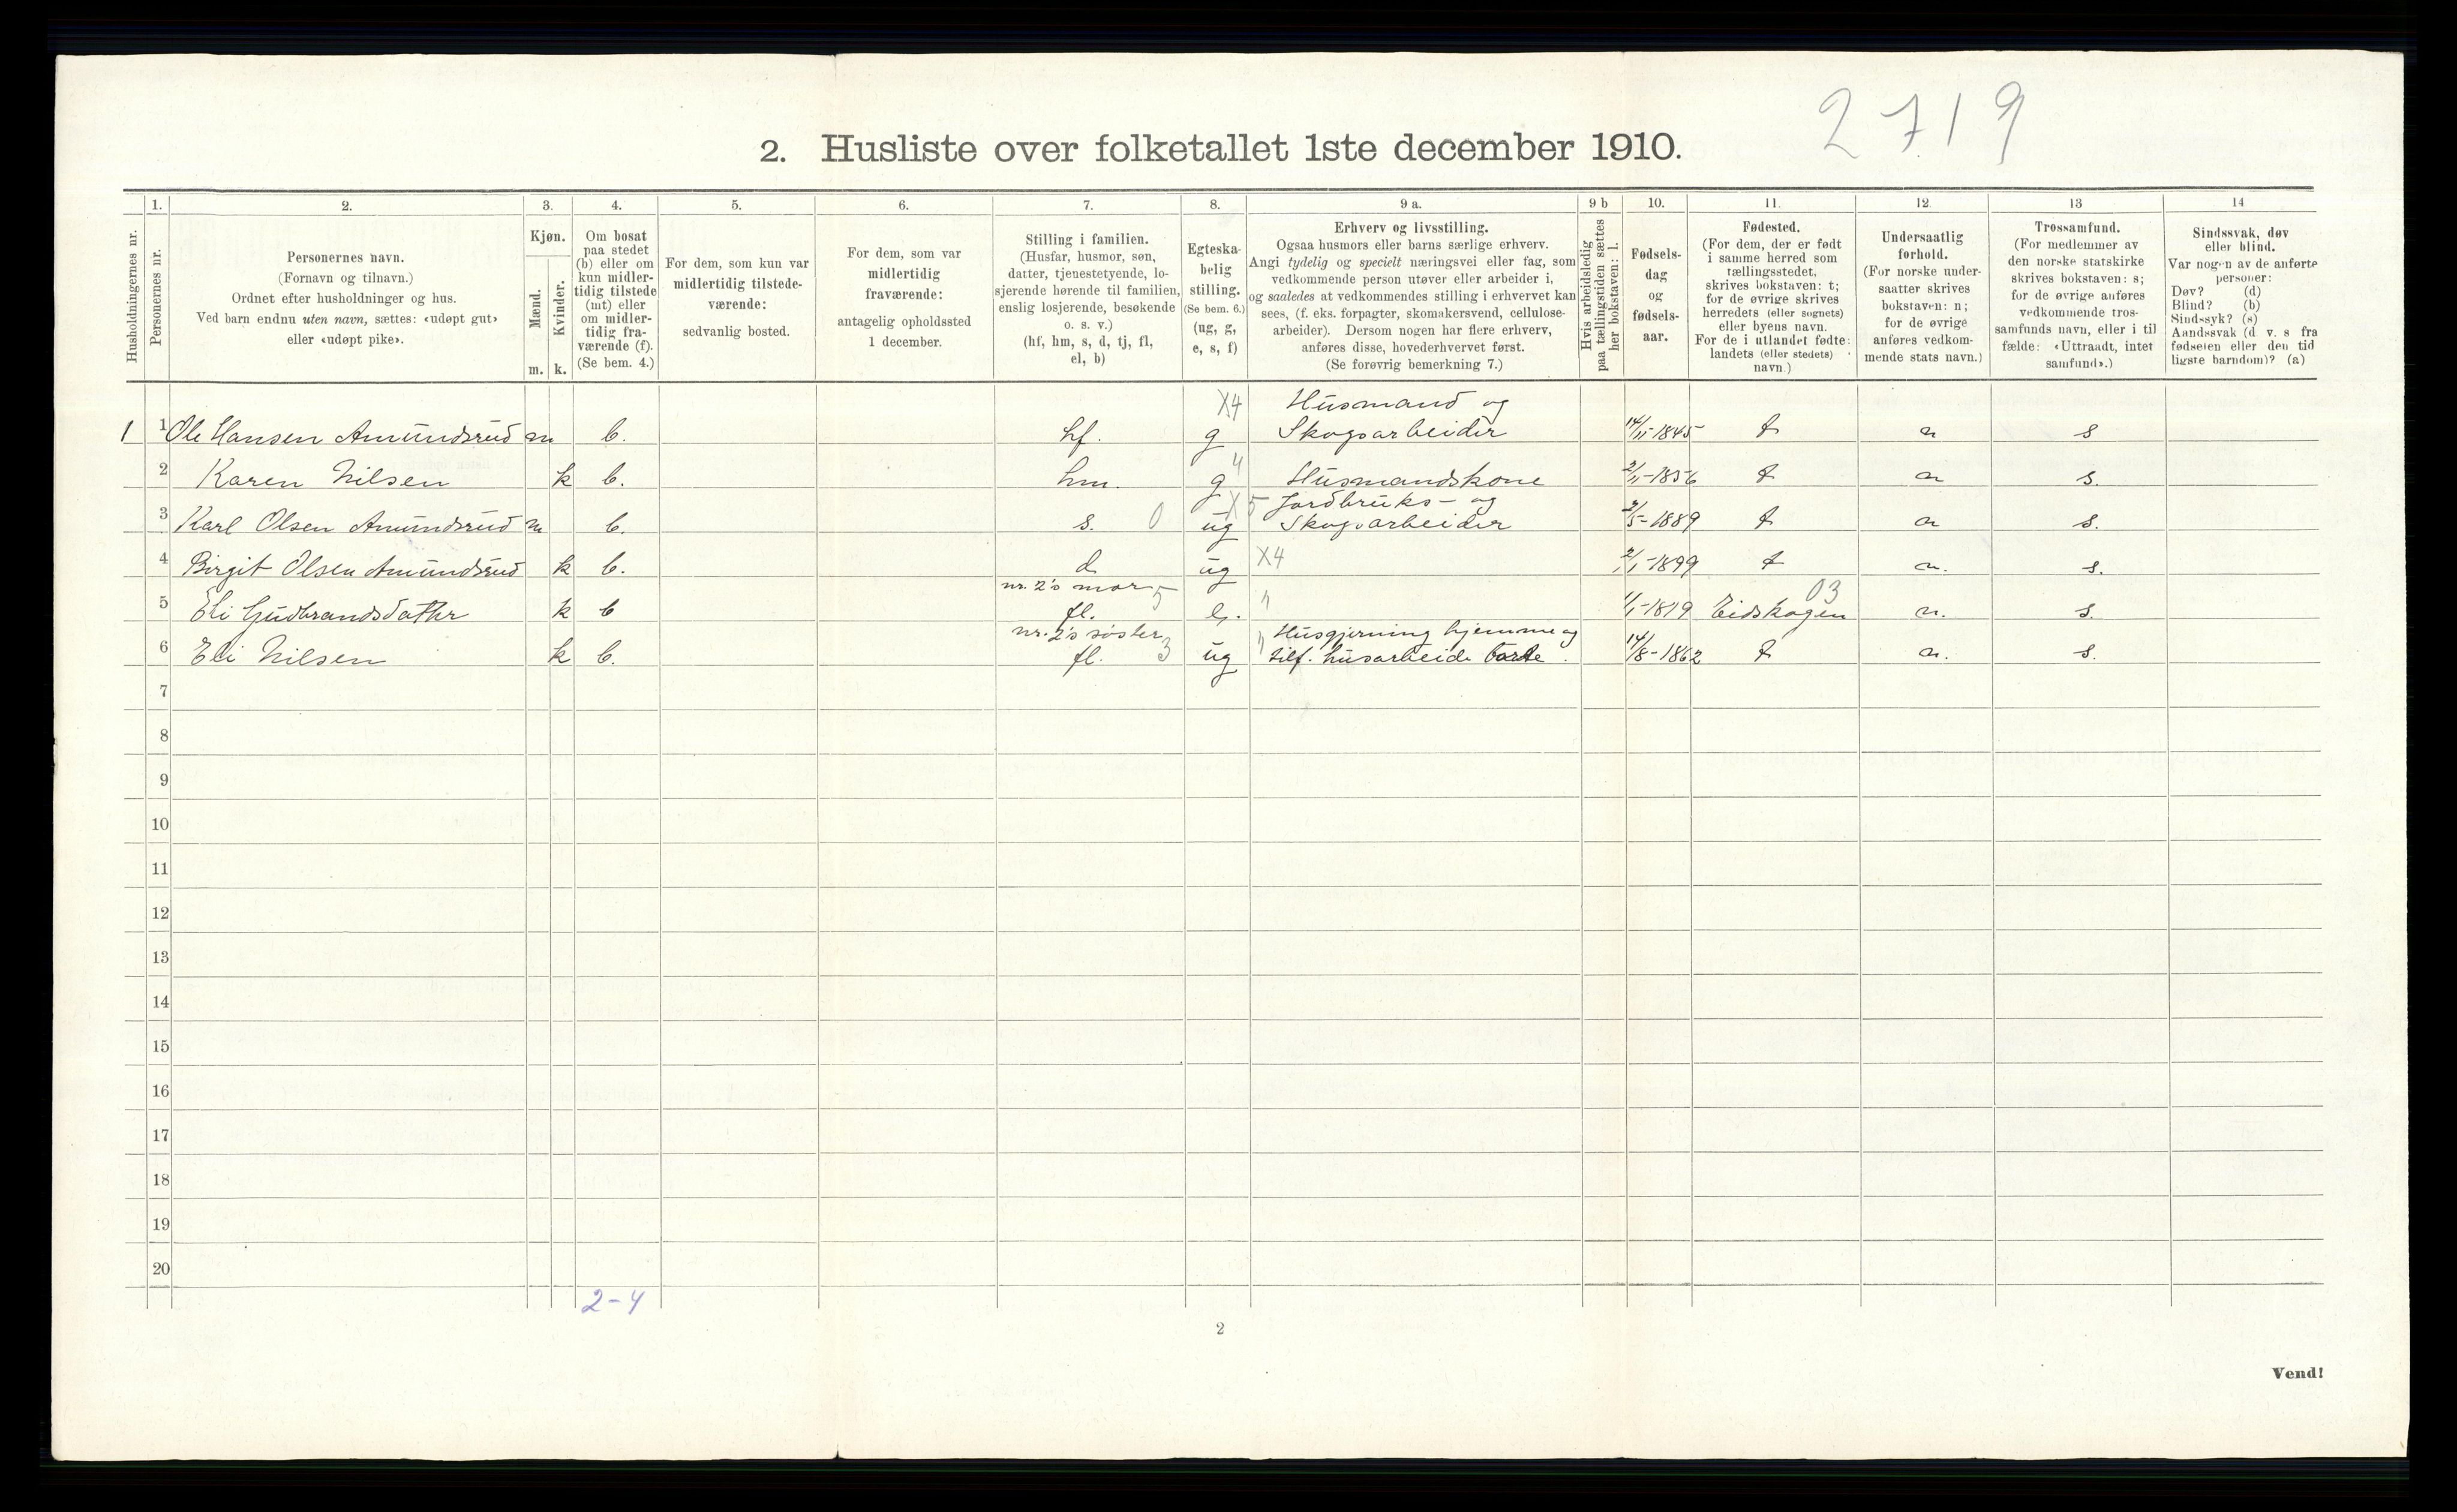 2719
2. Husliste over folketallet 1ste december 1910.
1. 2. 3. 4. 5. 6. 7. 8. 9 a. 9 b 10. 11. 12. 13 14
Husholdningernes nr.
Personernes nr.
Personernes navn.
(Fornavn og tilnavn.)
Ordnet efter husholdninger og hus.
Ved barn endnu uten navn, sættes: «udøpt gut»
eller «udøpt pike».
Kjøn.
Mænd.
Kvinder.
m. k.
Om bosat
paa stedet
(b) eller om
kun midler-
tidig tilstede
(mt) eller
om midler-
tidig fra-
værende (f).
(Se bem. 4.)
For dem, som kun var
midlertidig tilstede-
værende:
sedvanlig bosted.
For dem, som var
midlertidig
fraværende:
antagelig opholdssted
1 december.
Stilling i familien.
(Husfar, husmor, søn,
datter, tjenestetyende, lo-
sjerende hørende til familien,
enslig losjerende, besøkende
o. s. v.)
(hf, hm, s, d, tj, fl,
el, b)
Egteska-
belig
stilling.
(Se bem. 6.)
(ug, g,
e, s, f)
Erhverv og livsstilling.
Ogsaa husmors eller barns særlige erhverv.
Angi tydelig og specielt næringsvei eller fag, som
vedkommende person utøver eller arbeider i,
og saaledes at vedkommendes stilling i erhvervet kan
sees, (f. eks. forpagter, skomakersvend, cellulose-
arbeider). Dersom nogen har flere erhverv,
anføres disse, hovederhvervet først.
(Se forøvrig bemerkning 7.)
Hvis arbeidsledig
paa tællingstiden sættes
her bokstaven: l.
Fødsels-
dag
og
fødsels-
aar.
Fødested.
(For dem, der er født
i samme herred som
tællingsstedet,
skrives bokstaven: t;
for de øvrige skrives
herredets (eller sognets)
eller byens navn.
For de i utlandet fødte:
landets (eller stedets)
navn.)
Undersaatlig
forhold.
(For norske under-
saatter skrives
bokstaven: n;
for de øvrige
anføres vedkom-
mende stats navn.)
Trossamfund.
(For medlemmer av
den norske statskirke
skrives bokstaven: s;
for de øvrige anføres
vedkommende tros-
samfunds navn, eller i til
fælde: «Uttraadt, intet
samfund».)
Sindssvak, døv
eller blind.
Var nogen av de anførte
personer:
Døv? (d)
Blind? (b)
Sindssyk? (s)
Aandssvak (d v. s fra
fødselen eller den tid
ligste barndom)? (a)
X4 Husmand og
1 1 Ole Hansen Amundsrud m b. hf. g Skogsarbeider 14/11-1845 t n s
4
2 Karen Nilsen k b. hm. g Husmandskone 2/11-1856 t n s.
X5 Jordbruks- og
3 Karl Olsen Amundsrud m b. s. 0 ug Skogsarbeider 2/5-1889 t n s.
4 Birgit Olsen Amundsrud k b. d ug X4 2/1-1899 t n. s.
nr. 2's mor 5 03
5 Eli Gudbrandsdatter k b fl. e. 1/1-1819 Eidskogen n. s.
nr. 2's søster 3 Husgjerning hjemme og
6 Eli Nilsen k b. fl. ug tilf. husarbeide borte. 14/8-1862 t n. s.
7
8
9
10
11
12
13
14
15
16
17
18
19
20
2-4
2
Vend!